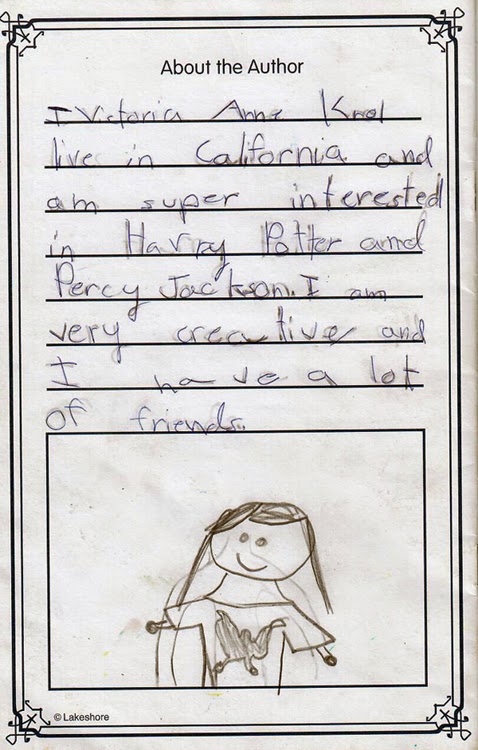 About the Author
I Victoria Anne Krol
live in California and
am super interested
in Harry Potter and
Percy Jackson. I am
very creative and
I have a lot
of friends.
© Lakeshore